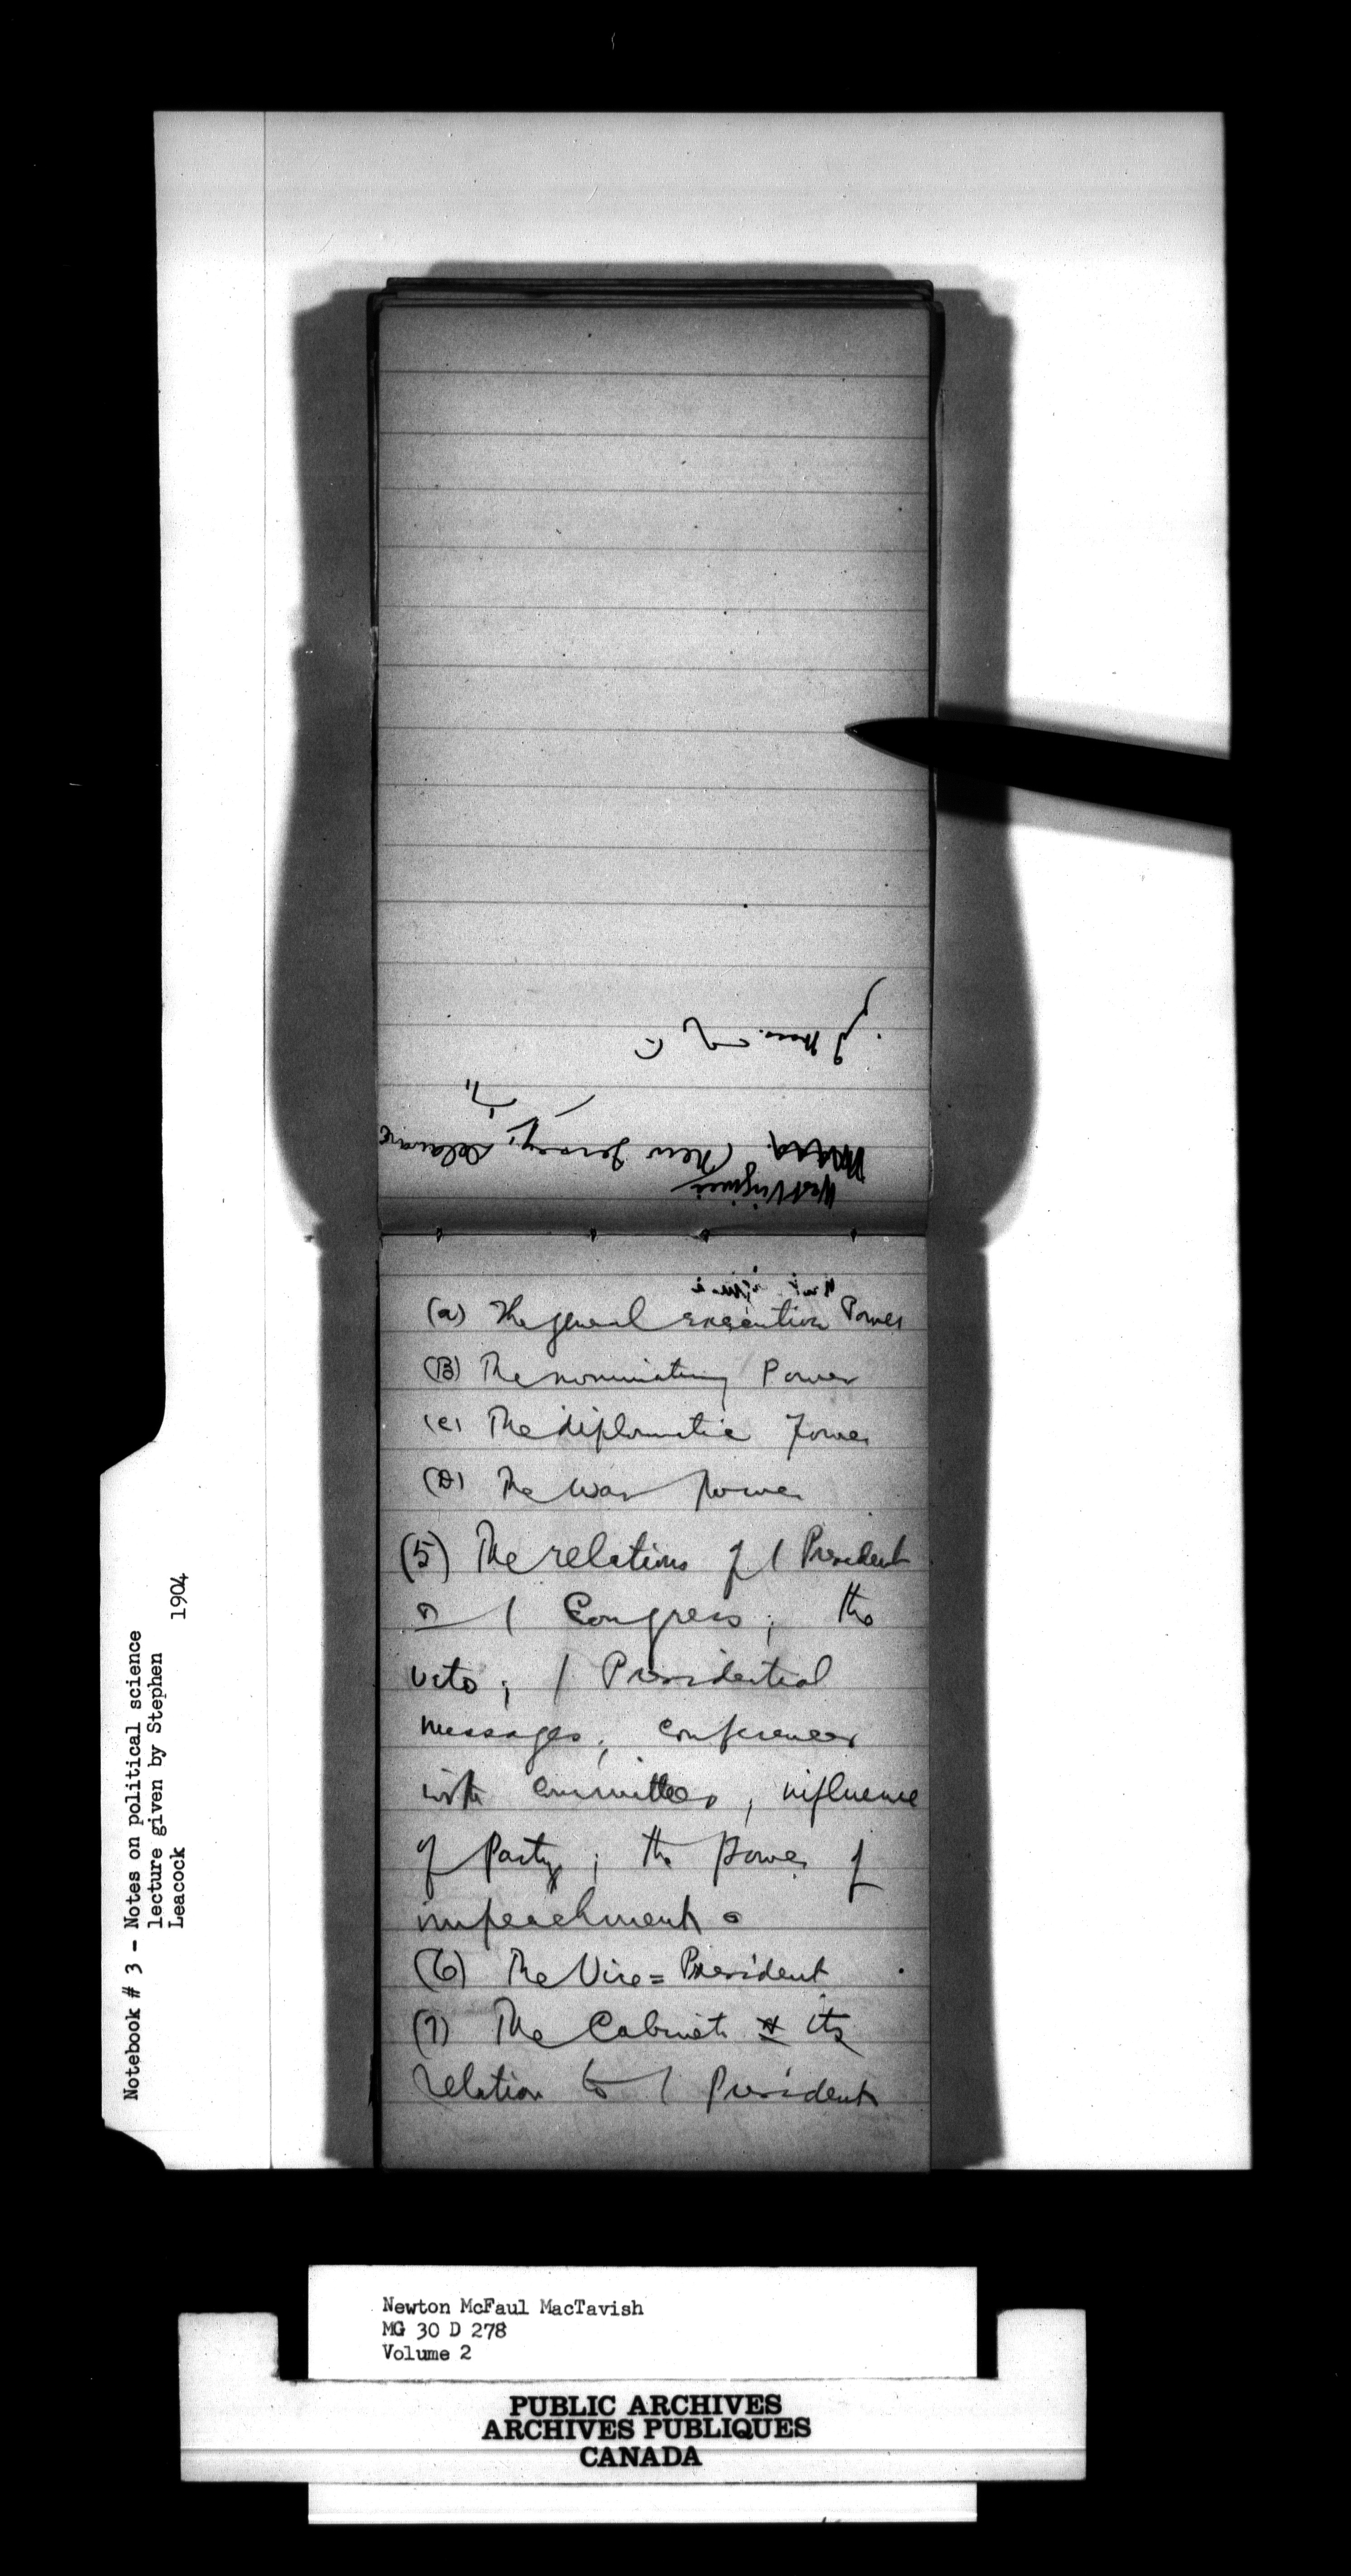 West Virginia
Mass. (New Jersey, Delaware
(a) The general execution Power
(B) The nominating Power
(c) The diplomatic Power
(D) The War power
(5) The relations of / President
/ Congress; the
veto; / Presidential
messages; conferences
with committees, influence
of Party; the power of
impeachment.
(6) The Vice=President
(7) The Cabinet & its
relation to / President
Notebook # 3 - Notes on political science
lecture given by Stephen
Leacock 1904
Newton McFaul MacTavish
MG 30 D 278
Volume 2
PUBLIC ARCHIVES
ARCHIVES PUBLIQUES
CANADA